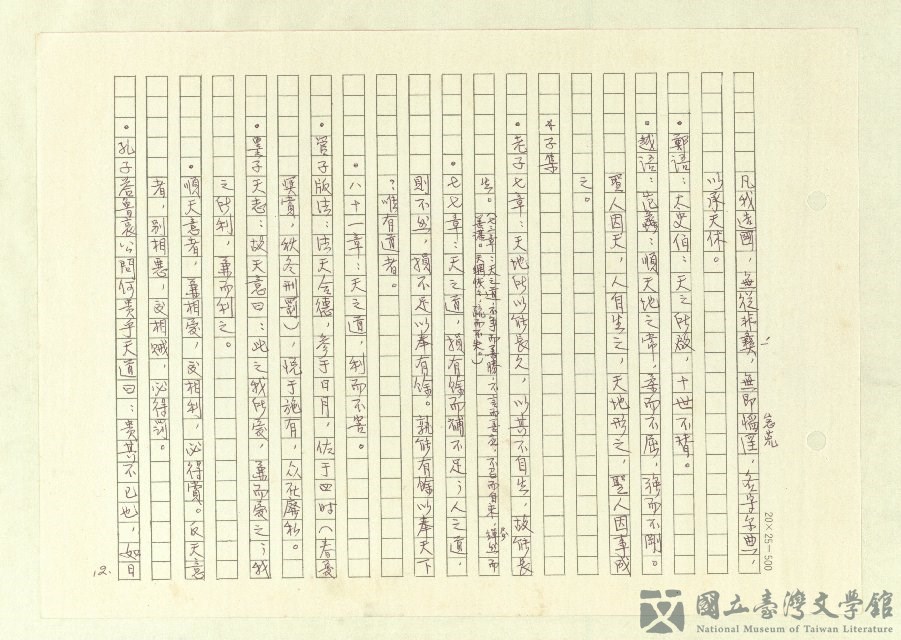 凡我造國，無從非彝，無即慆淫，各守爾典，
以承天休。
。鄭語：太史伯：天之所啟，十世不替。
。越語：范蠡：順天地之常，柔而不屈，強而不剛。
聖人因天，人自生之，天地形之，聖人因事成
之。
＊子集
。老子七章：天地所以能長久，以其不自生，故能長
生。（七三章：天之道，不爭而善勝，不言而善應，不召而自來，繟然而善謀。天網恢恢，疏而不失。）
。七七章：天之道，損有餘而補不足；人之道，
則不然，損不足以奉有餘。孰能有餘以奉天下
？唯有道者。
。八十一章：天之道，利而不害。
。管子版法：法天合德，參于日月，佐于四時（春夏
獎賞，秋冬刑罰），悅于施有，众在廢私。
。墨子天志：故天意曰：此之我所愛，兼而愛之；我
之所利，兼而利之。
。順天意者，兼相愛，交相利，必得賞。反天意
者，別相惡，交相賊，必得罰。
。孔子答魯哀公問何貴乎天道曰：貴其不已也，如日
12.
20×25＝500
國立臺灣文學館
National Museum of Taiwan Literature